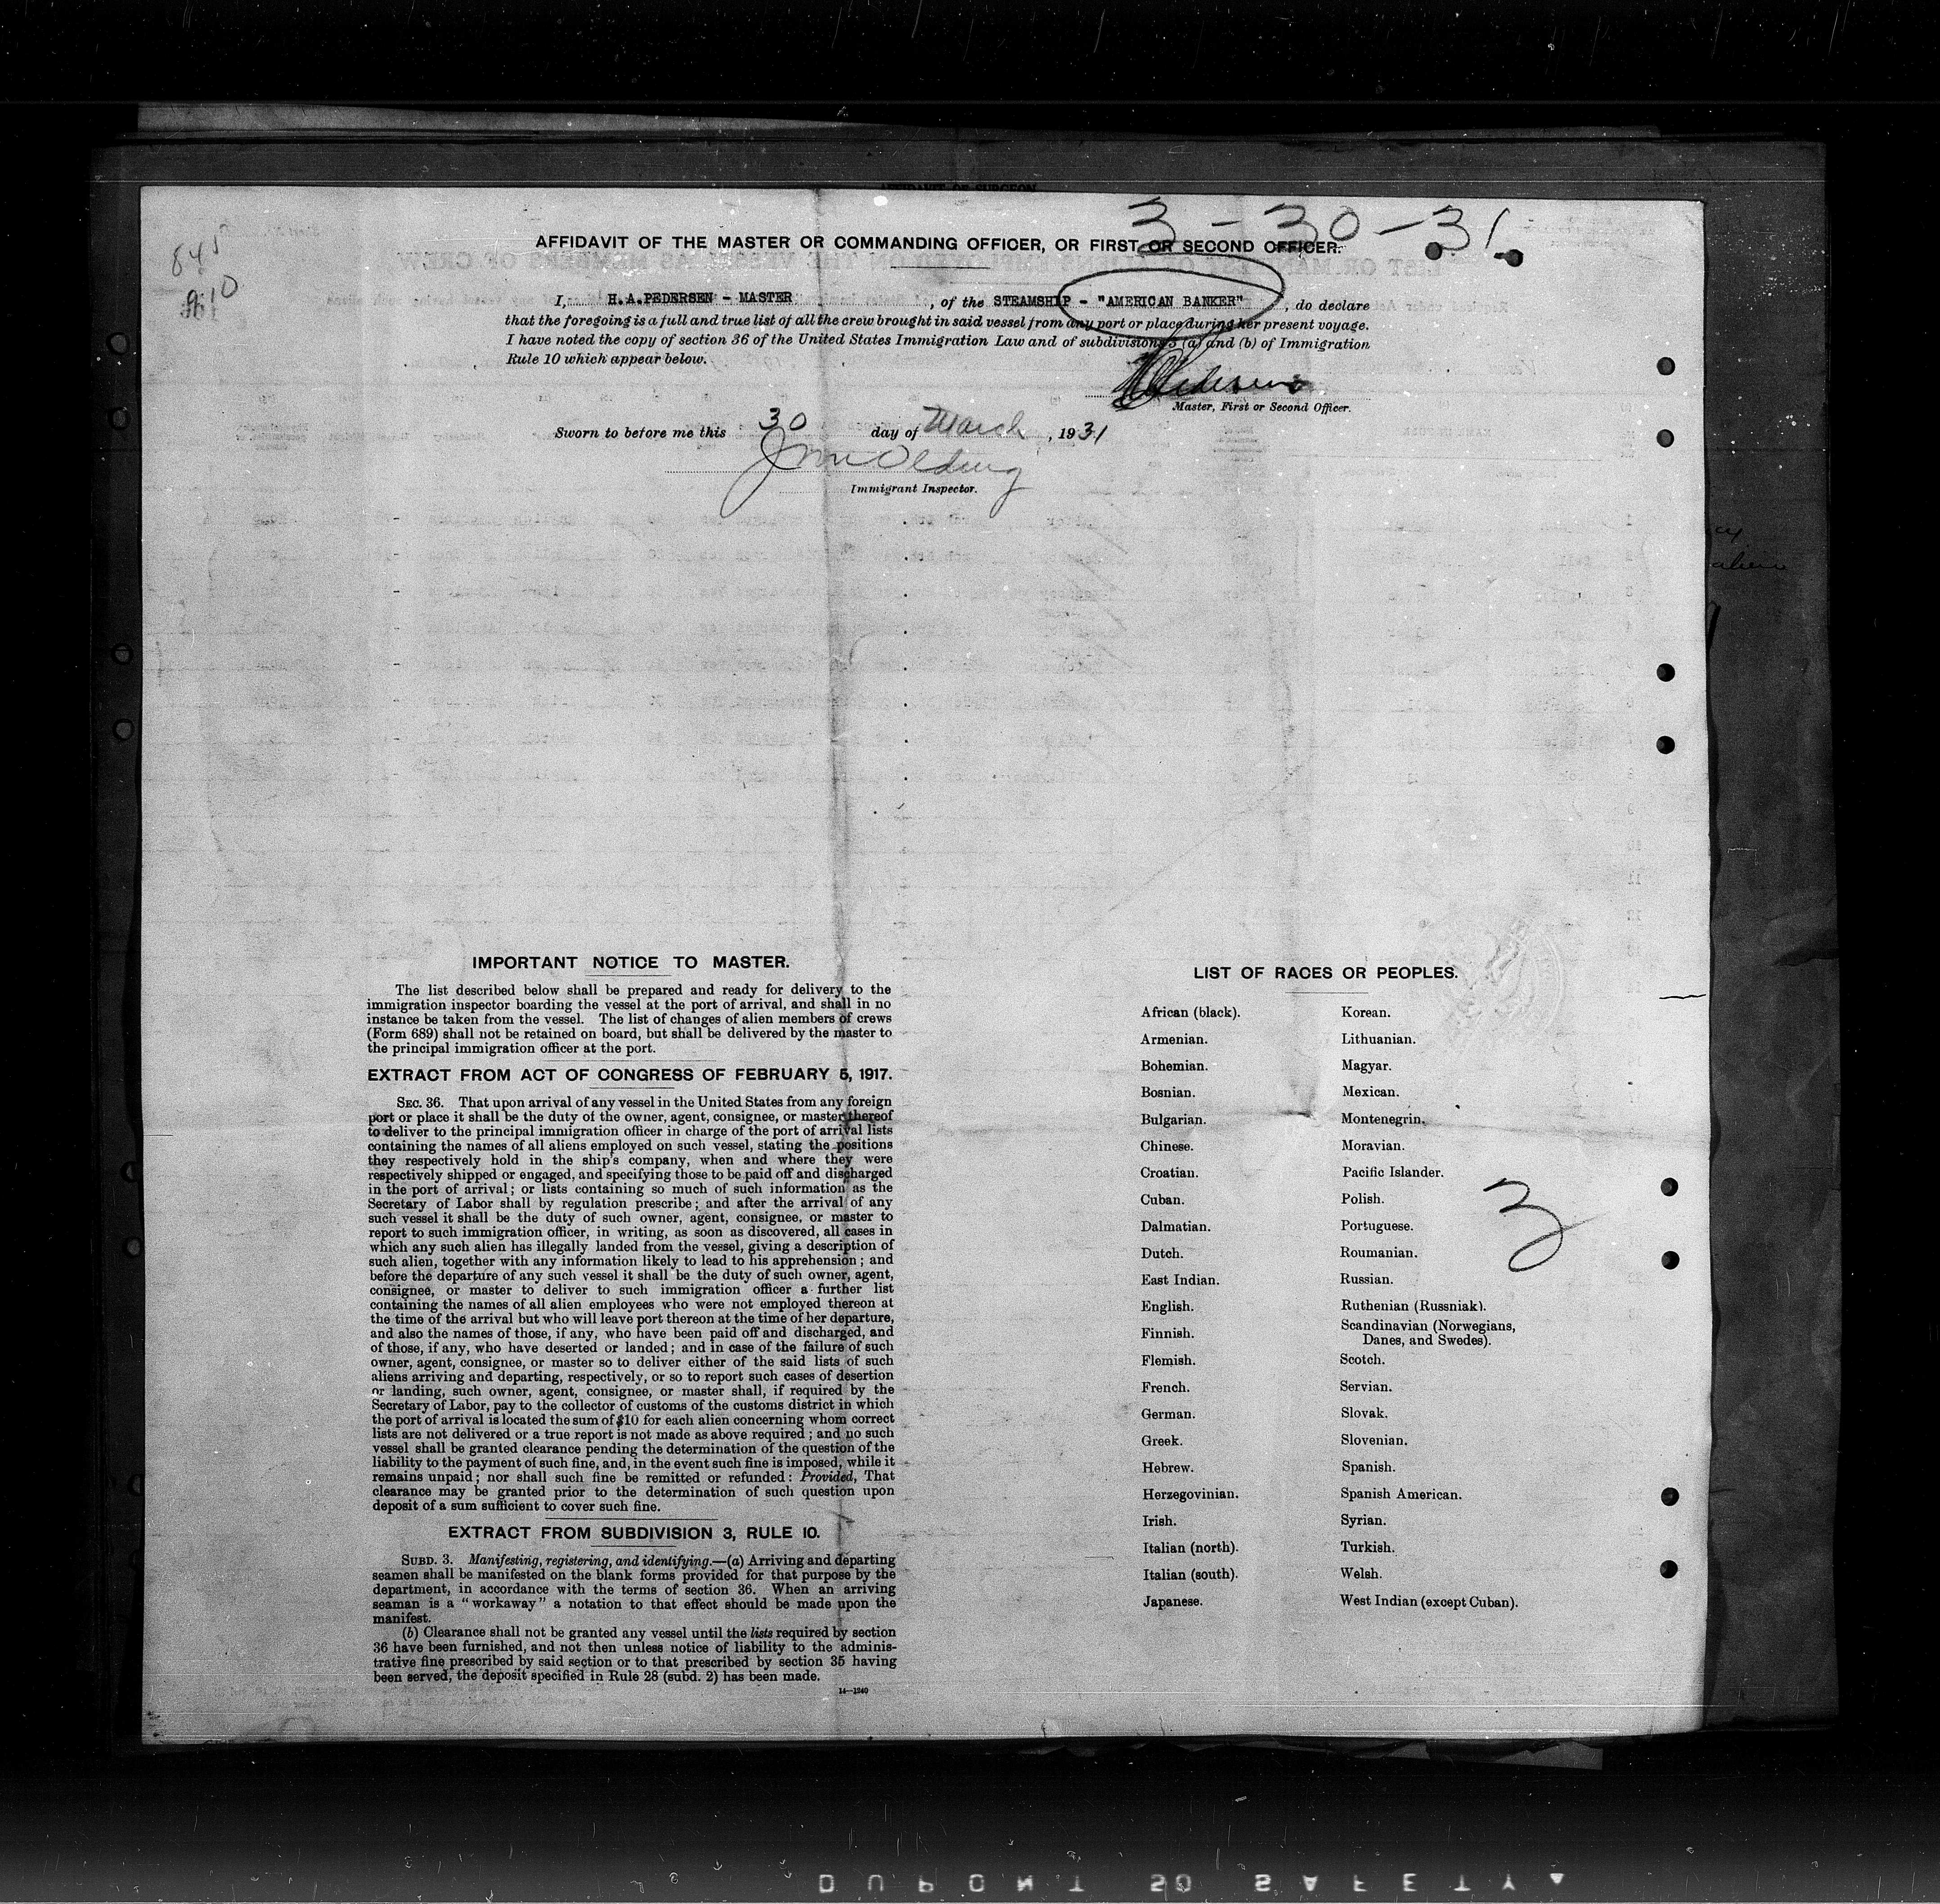 3-30-31
845
910
AFFIDAVIT OF THE MASTER OR COMMANDING OFFICER, OR FIRST OR SECOND OFFICER.
I, H.A.PEDERSEN - MASTER , of the STEAMSHIP - "AMERICAN BANKER" , do declare
that the foregoing is a full and true list of all the crew brought in said vessel from any port or place during her present voyage.
I have noted the copy of section 36 of the United States Immigration Law and of subdivisions 3 (a) and (b) of Immigration
Rule 10 which appear below.
HAPedersen
Master, First or Second Officer.
Sworn to before me this 30 day of March , 1931
Immigrant Inspector.
IMPORTANT NOTICE TO MASTER.
The list described below shall be prepared and ready for delivery to the
immigration inspector boarding the vessel at the port of arrival, and shall in no
instance be taken from the vessel. The list of changes of alien members of crews
(Form 689) shall not be retained on board, but shall be delivered by the master to
the principal immigration officer at the port.
EXTRACT FROM ACT OF CONGRESS OF FEBRUARY 5, 1917.
SEC. 36. That upon arrival of any vessel in the United States from any foreign
port or place it shall be the duty of the owner, agent, consignee, or master thereof
to deliver to the principal immigration officer in charge of the port of arrival lists
containing the names of all aliens employed on such vessel, stating the positions
they respectively hold in the ship's company, when and where they were
respectively shipped or engaged, and specifying those to be paid off and discharged
in the port of arrival; or lists containing so much of such information as the
Secretary of Labor shall by regulation prescribe; and after the arrival of any
such vessel it shall be the duty of such owner, agent, consignee, or master to
report to such immigration officer, in writing, as soon as discovered, all cases in
which any such alien has illegally landed from the vessel, giving a description of
such alien, together with any information likely to lead to his apprehension; and
before the departure of any such vessel it shall be the duty of such owner, agent,
consignee, or master to deliver to such immigration officer a further list
containing the names of all alien employees who were not employed thereon at
the time of the arrival but who will leave port thereon at the time of her departure,
and also the names of those, if any, who have been paid off and discharged, and
of those, if any, who have deserted or landed; and in case of the failure of such
owner, agent, consignee, or master so to deliver either of the said lists of such
aliens arriving and departing, respectively, or so to report such cases of desertion
or landing, such owner, agent, consignee, or master shall, if required by the
Secretary of Labor, pay to the collector of customs of the customs district in which
the port of arrival is located the sum of $10 for each alien concerning whom correct
lists are not delivered or a true report is not made as above required; and no such
vessel shall be granted clearance pending the determination of the question of the
liability to the payment of such fine, and, in the event such fine is imposed, while it
remains unpaid; nor shall such fine be remitted or refunded: Provided, That
clearance may be granted prior to the determination of such question upon
deposit of a sum sufficient to cover such fine.
EXTRACT FROM SUBDIVISION 3, RULE 10.
SUBD. 3. Manifesting, registering, and identifying.—(a) Arriving and departing
seamen shall be manifested on the blank forms provided for that purpose by the
department, in accordance with the terms of section 36. When an arriving
seaman is a "workaway" a notation to that effect should be made upon the
manifest.
(b) Clearance shall not be granted any vessel until the lists required by section
36 have been furnished, and not then unless notice of liability to the adminis-
trative fine prescribed by said section or to that prescribed by section 35 having
been served, the deposit specified in Rule 28 (subd. 2) has been made.
14—1240
LIST OF RACES OR PEOPLES.
African (black).
Armenian.
Bohemian.
Bosnian.
Bulgarian.
Chinese.
Croatian.
Cuban.
Dalmatian.
Dutch.
East Indian.
English.
Finnish.
Flemish.
French.
German.
Greek.
Hebrew.
Herzegovinian.
Irish.
Italian (north).
Italian (south).
Japanese.
Korean.
Lithuanian.
Magyar.
Mexican.
Montenegrin.
Moravian.
Pacific Islander.
Polish.
Portuguese.
Roumanian.
Russian.
Ruthenian (Russniak).
Scandinavian (Norwegians,
Danes, and Swedes).
Scotch.
Servian.
Slovak.
Slovenian.
Spanish.
Spanish American.
Syrian.
Turkish.
Welsh.
West Indian (except Cuban).
3
DUPONT 50 SAFETY